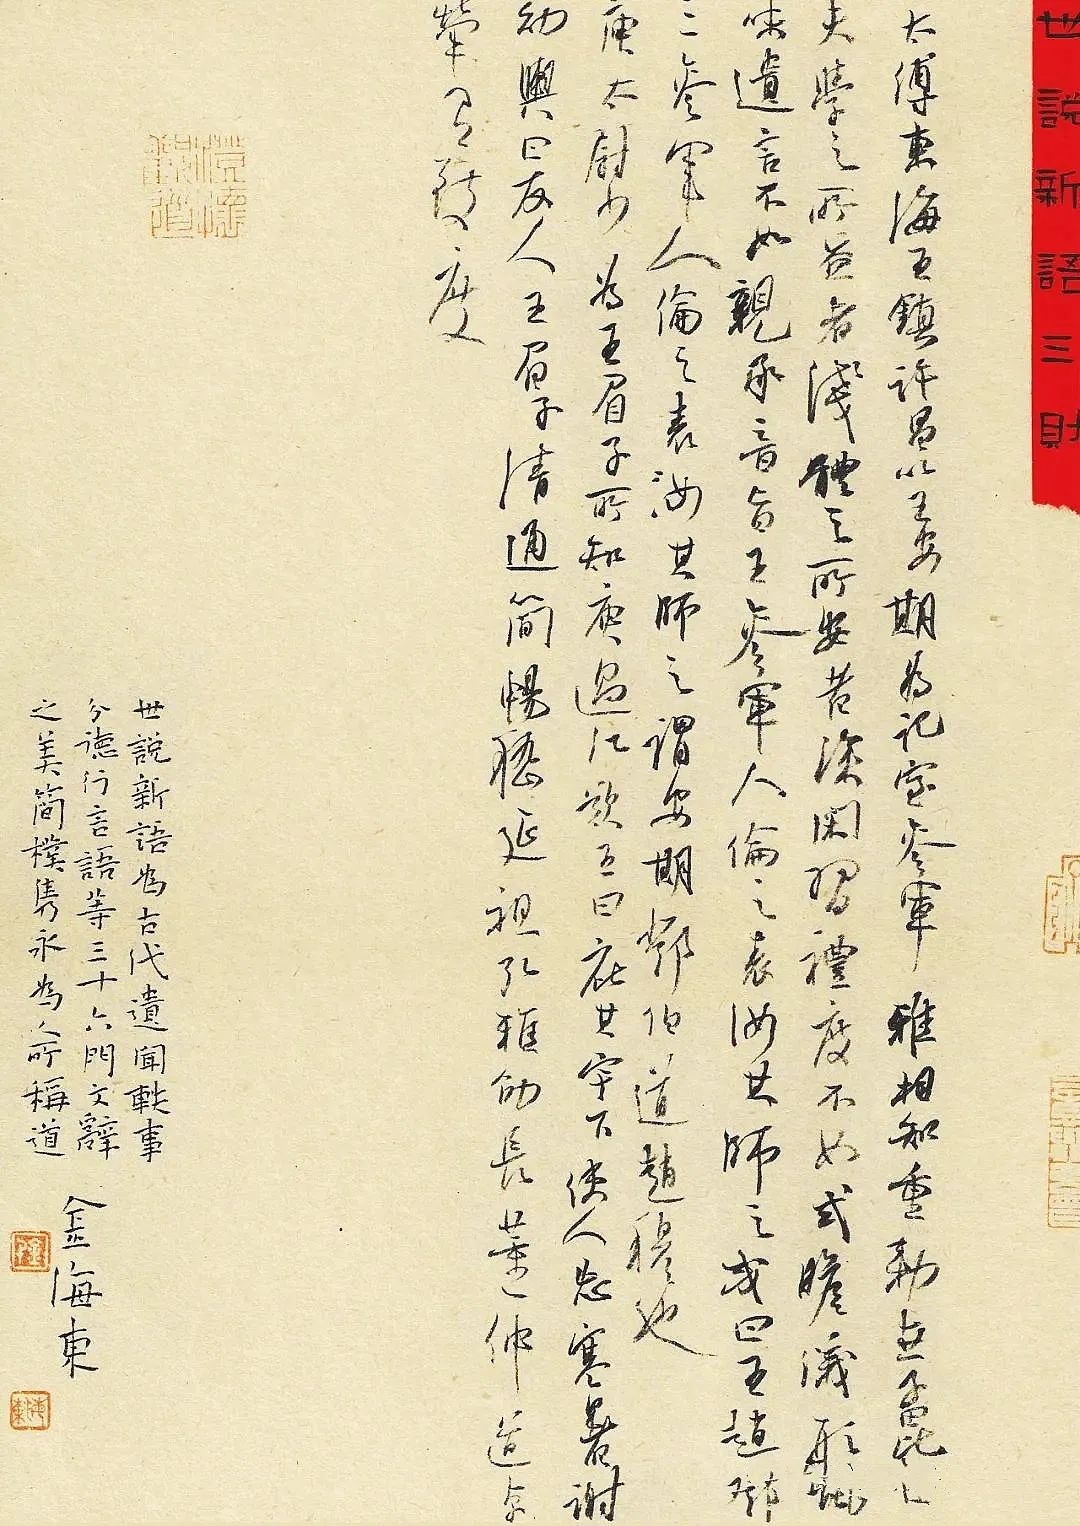 世說新語三則
太傅東海王鎮許昌以王安期為記室參軍雅相知重勅世子毘曰
夫學之所益者淺體之所安者深閑習禮度不如式瞻儀形諷
味遺言不如親承音旨王參軍人倫之表汝其師之或曰王趙鄧
三參軍人倫之表汝其師之謂安期鄧伯道趙穆也
庾太尉少為王眉子所知庾過江歎王曰庇其宇下使人忘寒暑謝
幼輿曰友人王眉子清通簡暢嵇延祖弘雅劭長董仲道卓
犖有致度
世說新語為古代遺聞軼事
分德行言語等三十六門文辭
之美簡樸雋永為人所稱道
金海東